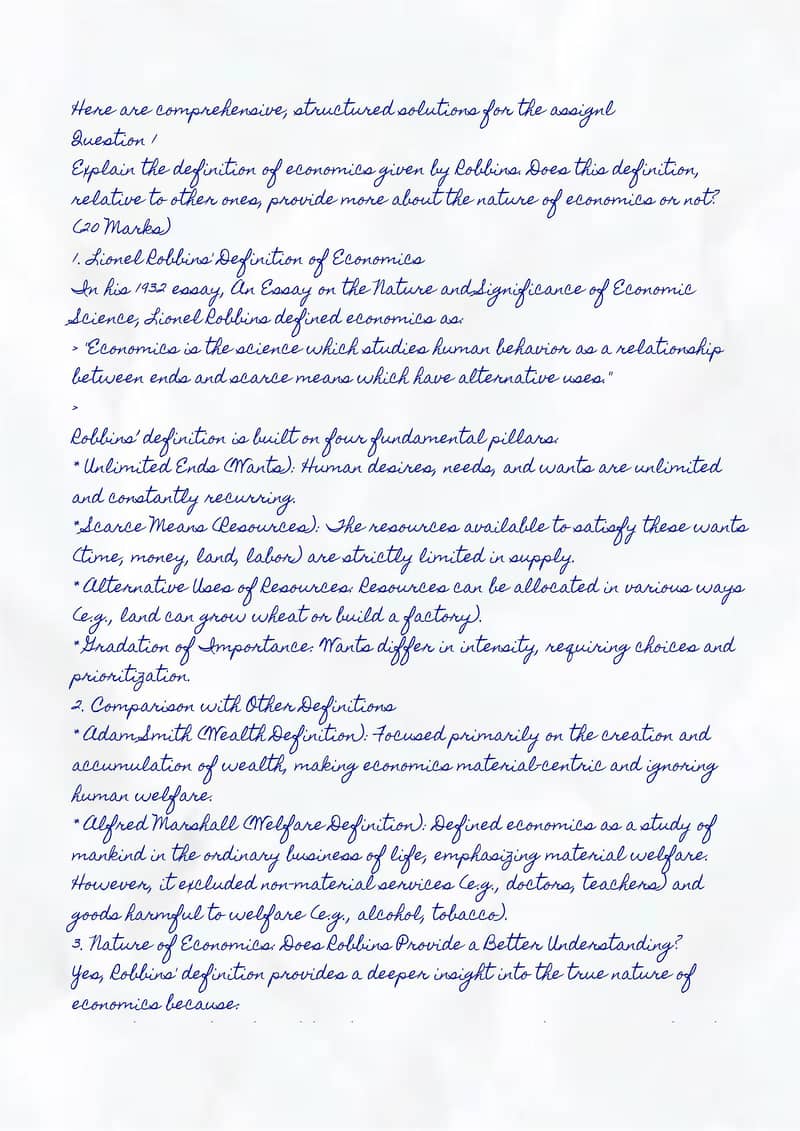 Here are comprehensive, structured solutions for the assignl
Question 1
Explain the definition of economics given by Robbins. Does this definition,
relative to other ones, provide more about the nature of economics or not?
(20 Marks)
1. Lionel Robbins' Definition of Economics
In his 1932 essay, An Essay on the Nature and Significance of Economic
Science, Lionel Robbins defined economics as:
> "Economics is the science which studies human behavior as a relationship
between ends and scarce means which have alternative uses."
>
Robbins' definition is built on four fundamental pillars:
* Unlimited Ends (Wants): Human desires, needs, and wants are unlimited
and constantly recurring.
* Scarce Means (Resources): The resources available to satisfy these wants
(time, money, land, labor) are strictly limited in supply.
* Alternative Uses of Resources: Resources can be allocated in various ways
(e.g., land can grow wheat or build a factory).
* Gradation of Importance: Wants differ in intensity, requiring choices and
prioritization.
2. Comparison with Other Definitions
* Adam Smith (Wealth Definition): Focused primarily on the creation and
accumulation of wealth, making economics material-centric and ignoring
human welfare.
* Alfred Marshall (Welfare Definition): Defined economics as a study of
mankind in the ordinary business of life, emphasizing material welfare.
However, it excluded non-material services (e.g., doctors, teachers) and
goods harmful to welfare (e.g., alcohol, tobacco).
3. Nature of Economics: Does Robbins Provide a Better Understanding?
Yes, Robbins' definition provides a deeper insight into the true nature of
economics because: